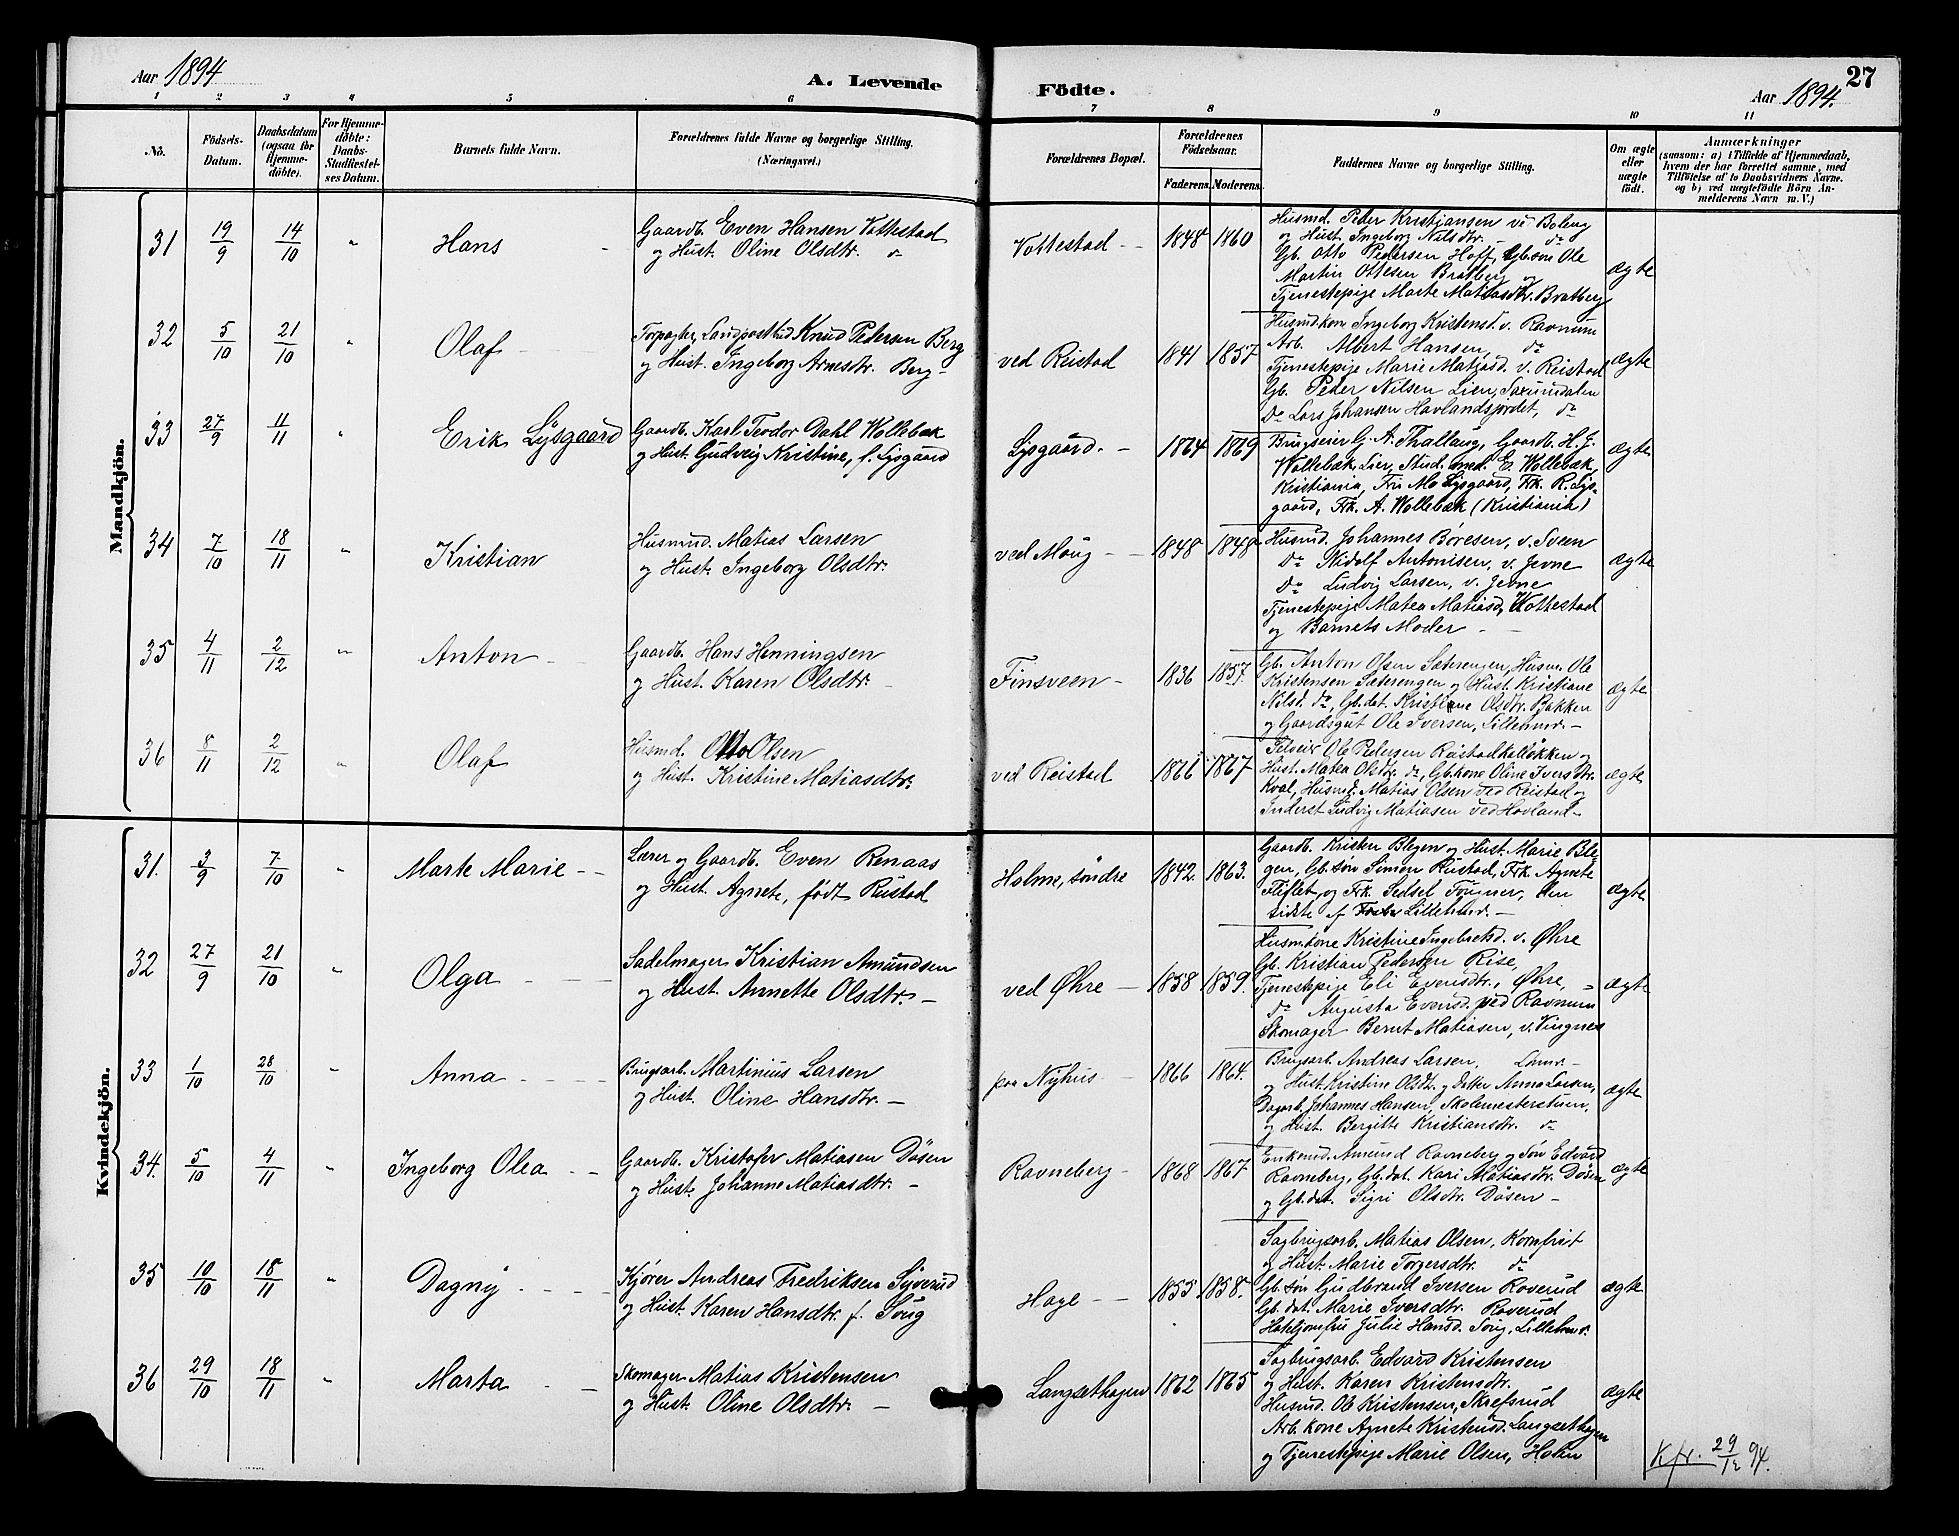 Aar 1894
A. Levende
Födte.
Aar 1894.
27
1 2 3 4 5 6 7 8 9 10 11
No.
Födsels-Datum.
Daabsdatum (ogsaa for Hjemmedöbte).
For Hjemmedöbte: Daabs-Stadfæstelses Datum.
Barnets fulde Navn.
Forældrenes fulde Navne og borgerlige Stilling. (Næringsvei.)
Forældrenes Bopæl.
Forældrenes Födselsaar.
Faderens. Moderens.
Faddernes Navne og borgerlige Stilling.
Om ægte eller uægte födt.
Anmærkninger
(saasom: a) i Tilfælde af Hjemmedaab, hvem der har forrettet samme, med Tilföielse af to Daabsvidners Navne. og b) ved uægtefödte Börn Anmelderens Navn m. V.)
Mandkjön.
31 19/9 14/10 " Hans
Gaardb. Even Hansen Vottestad
og Hust. Oline Olsdtr. do
Vottestad - 1848 1860
Husmd. Peder Kristjansen v. Boleng
og Hust. Ingeborg Nilsdtr. do
Gb. Otto Pedersen Hoff, Gb.søn Ole
Martin Ottesen Bratberg og
Tjenestepige Marte Matiasdtr. Bratberg
ægte
32 5/10 21/10 " Olaf
Landpostbud Knud Pedersen Berg
og Hust. Ingeborg Arnesdtr. Berg -
ved Reistad 1841 1857
Husmdkone Ingeborg Kristensd. v. Ravnum
Arb. Albert Hansen, do
Tjenestepige Marie Matiasd. v. Reistad
Gb. Peder Nilsen Lien, Saxumdalen
Do Lars Johansen Havlandsjordet, do
ægte
33 27/9 11/11 " Erik Lysgaard
Gaardb. Karl Teodor Dahl Wollebæk
og Hust. Gudveig Kristine, f. Lysgaard
Lysgaard. - 1864 1869
Brugseier G. A. Thallaug, Gaardb. H. J.
Wollebæk, Lier, Stud. med. E. Wollebæk,
Kristiania, Fru Mo Lysgaard, Frk. R. Lys-
gaard, Frk. A. Wollebæk (Kristiania)
ægte
34 7/10 18/11 " Kristian
Husmd. Matias Larsen
og Hust. Ingeborg Olsdtr.
ved Moug - 1848 1848
Husmd. Johannes Børesen, v. Sveen
Do Nidolf Antonisen, v. Jevne
Do Ludvig Larsen, v. Jevne
Tjenestepige Matea Matiasd, Vottestad
og Barnets Moder -
ægte
35 4/11 2/12 " Anton
Gaardb. Hans Henningsen
og Hust. Karen Olsdtr. -
Finsveen - 1836 1857.
Gb. Anton Olsen Sæterengen, Husm. Ole
Kristensen Sæterengen og Hust. Kristiane
Nilsd. do, Gb.dat. Kristiane Olsdtr. Bakken
og Gaardsgut Ole Iversen, Lillehmr. -
ægte
36 8/11 2/12 " Olaf
Husmd. Otto Olsen
og Hust. Kristine Matiasdtr.
ved Reistad 1866 1867
Selveier Ole Pedersen Reistadkalløkken og
Hust. Matea Olsdtr. do, Gb.kone Oline Iversdtr.
Kval, Husmd. Matias Olsen ved Reistad og
Inderst Ludvig Matiasen ved Hovland -
ægte
Kvindekjön.
31. 3/9 7/10 " Marte Marie -
Lærer og Gaardb. Even Renaas
og Hust. Agnete, født Rustad
Holme, søndre 1842. 1863.
Gaardb. Kristen Blegen og Hust. Marie Ble-
gen, Gb.søn Simon Rustad, Frk. Agnete
Fliflet og Frk. Sedsel Tougner, den
sidste af Lillehmr. -
ægte
32 27/9 21/10 " Olga
Sadelmager Kristian Amundsen
og Hust. Annette Olsdtr. -
ved Øhre - 1858 1859.
Husmkone Kristine Ingebretsd. v. Øhre
Gb. Kristian Pedersen Rise,
Tjenestepige Eli Evensdtr., Øhre,
do Augusta Evensd. ved Ravnum
Skomager Bernt Matiasen, v. Vingnes
ægte
33 1/10 28/10 " Anna
Brugsarb. Martinius Larsen
og Hust. Oline Hansdtr. -
paa Nyhus - 1866 1864.
Brugsarb. Andreas Larsen,
og Hust. Kristine Olsdt. og datter Anna Larsen,
Dagarb. Johannes Hansen, Skolemesterstuen,
og Hust. Bergitte Kristiansdtr. do
ægte
34. 5/10 4/11 " Ingeborg Olea
Gaardb. Kristofer Matiasen Døsen
og Hust. Johanne Matiasdtr. -
Ravneberg - 1868 1867
Enkemd. Amund Ravneberg og Søn Edvard
Ravneberg, Gb.dat. Kari Matiasdtr. Døsen
og Gb.dat. Sigri Olsdtr. Døsen -
ægte
35 10/10 18/11 " Dagny
Kjører Andreas Fredriksen Syverud
og Hust. Karen Hansdtr. f. Soug
Hage - 1855. 1858.
Sagbrugsarb. Matias Olsen, Kornfrit
og Hust. Marie Torgersdtr. do
Gb.søn Gudbrand Iversen Roverud
Gb.dat. Marie Iversdtr. Roverud
Hoteljomfru Julie Hansd. Soug, Lillehmr.
ægte
36 29/10 18/11 " Marta
Skomager Matias Kristensen
og Hust. Oline Olsdtr. -
Langsethagen 1862 1865
Sagbrugsarb. Edvard Kristensen
og Hust. Karen Kristensdtr.
Husmd. Ole Kristensen, Skrefsrud
Arb.kone Agnete Kristensd. Langsethagen
og Tjenestepige Marie Olsen, Holen
ægte
Kfr. 29/12 94.